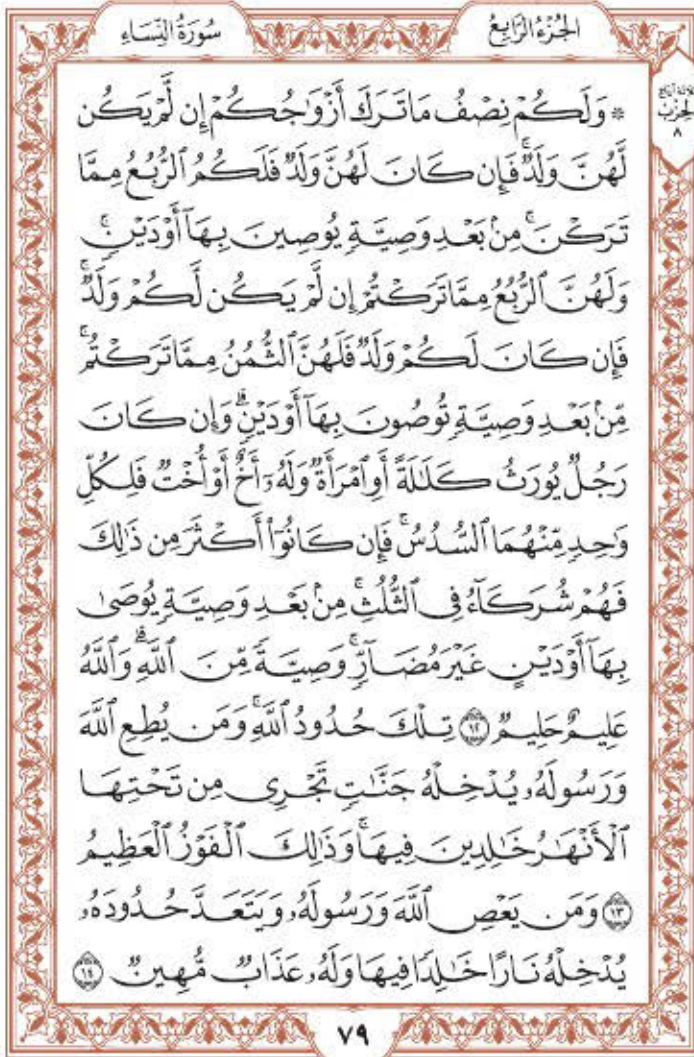 سُورَةُ النِّسَاءِ
الجُزْءُ الرَّابِعُ
الحِزْبِ
٨
۞ وَلَكُمْ نِصْفُ مَا تَرَكَ أَزْوَٰجُكُمْ إِن لَّمْ يَكُن
لَّهُنَّ وَلَدٌۚ فَإِن كَانَ لَهُنَّ وَلَدٌ فَلَكُمُ ٱلرُّبُعُ مِمَّا
تَرَكْنَۚ مِنۢ بَعْدِ وَصِيَّةٍ يُوصِينَ بِهَآ أَوْ دَيْنٍۚ
وَلَهُنَّ ٱلرُّبُعُ مِمَّا تَرَكْتُمْ إِن لَّمْ يَكُن لَّكُمْ وَلَدٌۚ
فَإِن كَانَ لَكُمْ وَلَدٌ فَلَهُنَّ ٱلثُّمُنُ مِمَّا تَرَكْتُمۚ
مِّنۢ بَعْدِ وَصِيَّةٍ تُوصُونَ بِهَآ أَوْ دَيْنٍۗ وَإِن كَانَ
رَجُلٌ يُورَثُ كَلَٰلَةً أَوِ ٱمْرَأَةٌ وَلَهُۥٓ أَخٌ أَوْ أُخْتٌ فَلِكُلِّ
وَٰحِدٍ مِّنْهُمَا ٱلسُّدُسُۚ فَإِن كَانُوٓا۟ أَكْثَرَ مِن ذَٰلِكَ
فَهُمْ شُرَكَآءُ فِى ٱلثُّلُثِۚ مِنۢ بَعْدِ وَصِيَّةٍ يُوصَىٰ
بِهَآ أَوْ دَيْنٍ غَيْرَ مُضَآرٍّۚ وَصِيَّةً مِّنَ ٱللَّهِۗ وَٱللَّهُ
عَلِيمٌ حَلِيمٌ ١٢ تِلْكَ حُدُودُ ٱللَّهِۚ وَمَن يُطِعِ ٱللَّهَ
وَرَسُولَهُۥ يُدْخِلْهُ جَنَّٰتٍ تَجْرِى مِن تَحْتِهَا
ٱلْأَنْهَٰرُ خَٰلِدِينَ فِيهَاۚ وَذَٰلِكَ ٱلْفَوْزُ ٱلْعَظِيمُ
١٣ وَمَن يَعْصِ ٱللَّهَ وَرَسُولَهُۥ وَيَتَعَدَّ حُدُودَهُۥ
يُدْخِلْهُ نَارًا خَٰلِدًا فِيهَا وَلَهُۥ عَذَابٌ مُّهِينٌ ١٤
٧٩